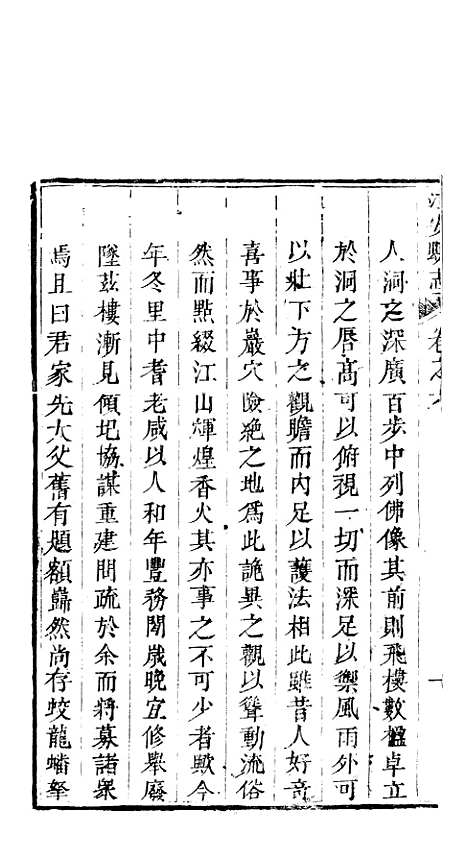 江安縣志 卷之
人洞之深廣百步中列佛像其前則飛樓數楹卓立
於洞之唇高可以俯視一切而深足以禦風雨外可
以壯下方之觀瞻而内足以護法相此雖昔人好奇
喜事於巖穴險絶之地爲此詭異之觀以聳動流俗
然而點綴江山輝煌香火其亦事之不可少者歟今
年冬里中耆老咸以人和年豐務閒歲晚宜修舉廢
墜茲樓漸見傾圯協謀重建問疏於余而將募諸衆
焉且曰君家先大父舊有題額巋然尚存蛟龍蟠拏